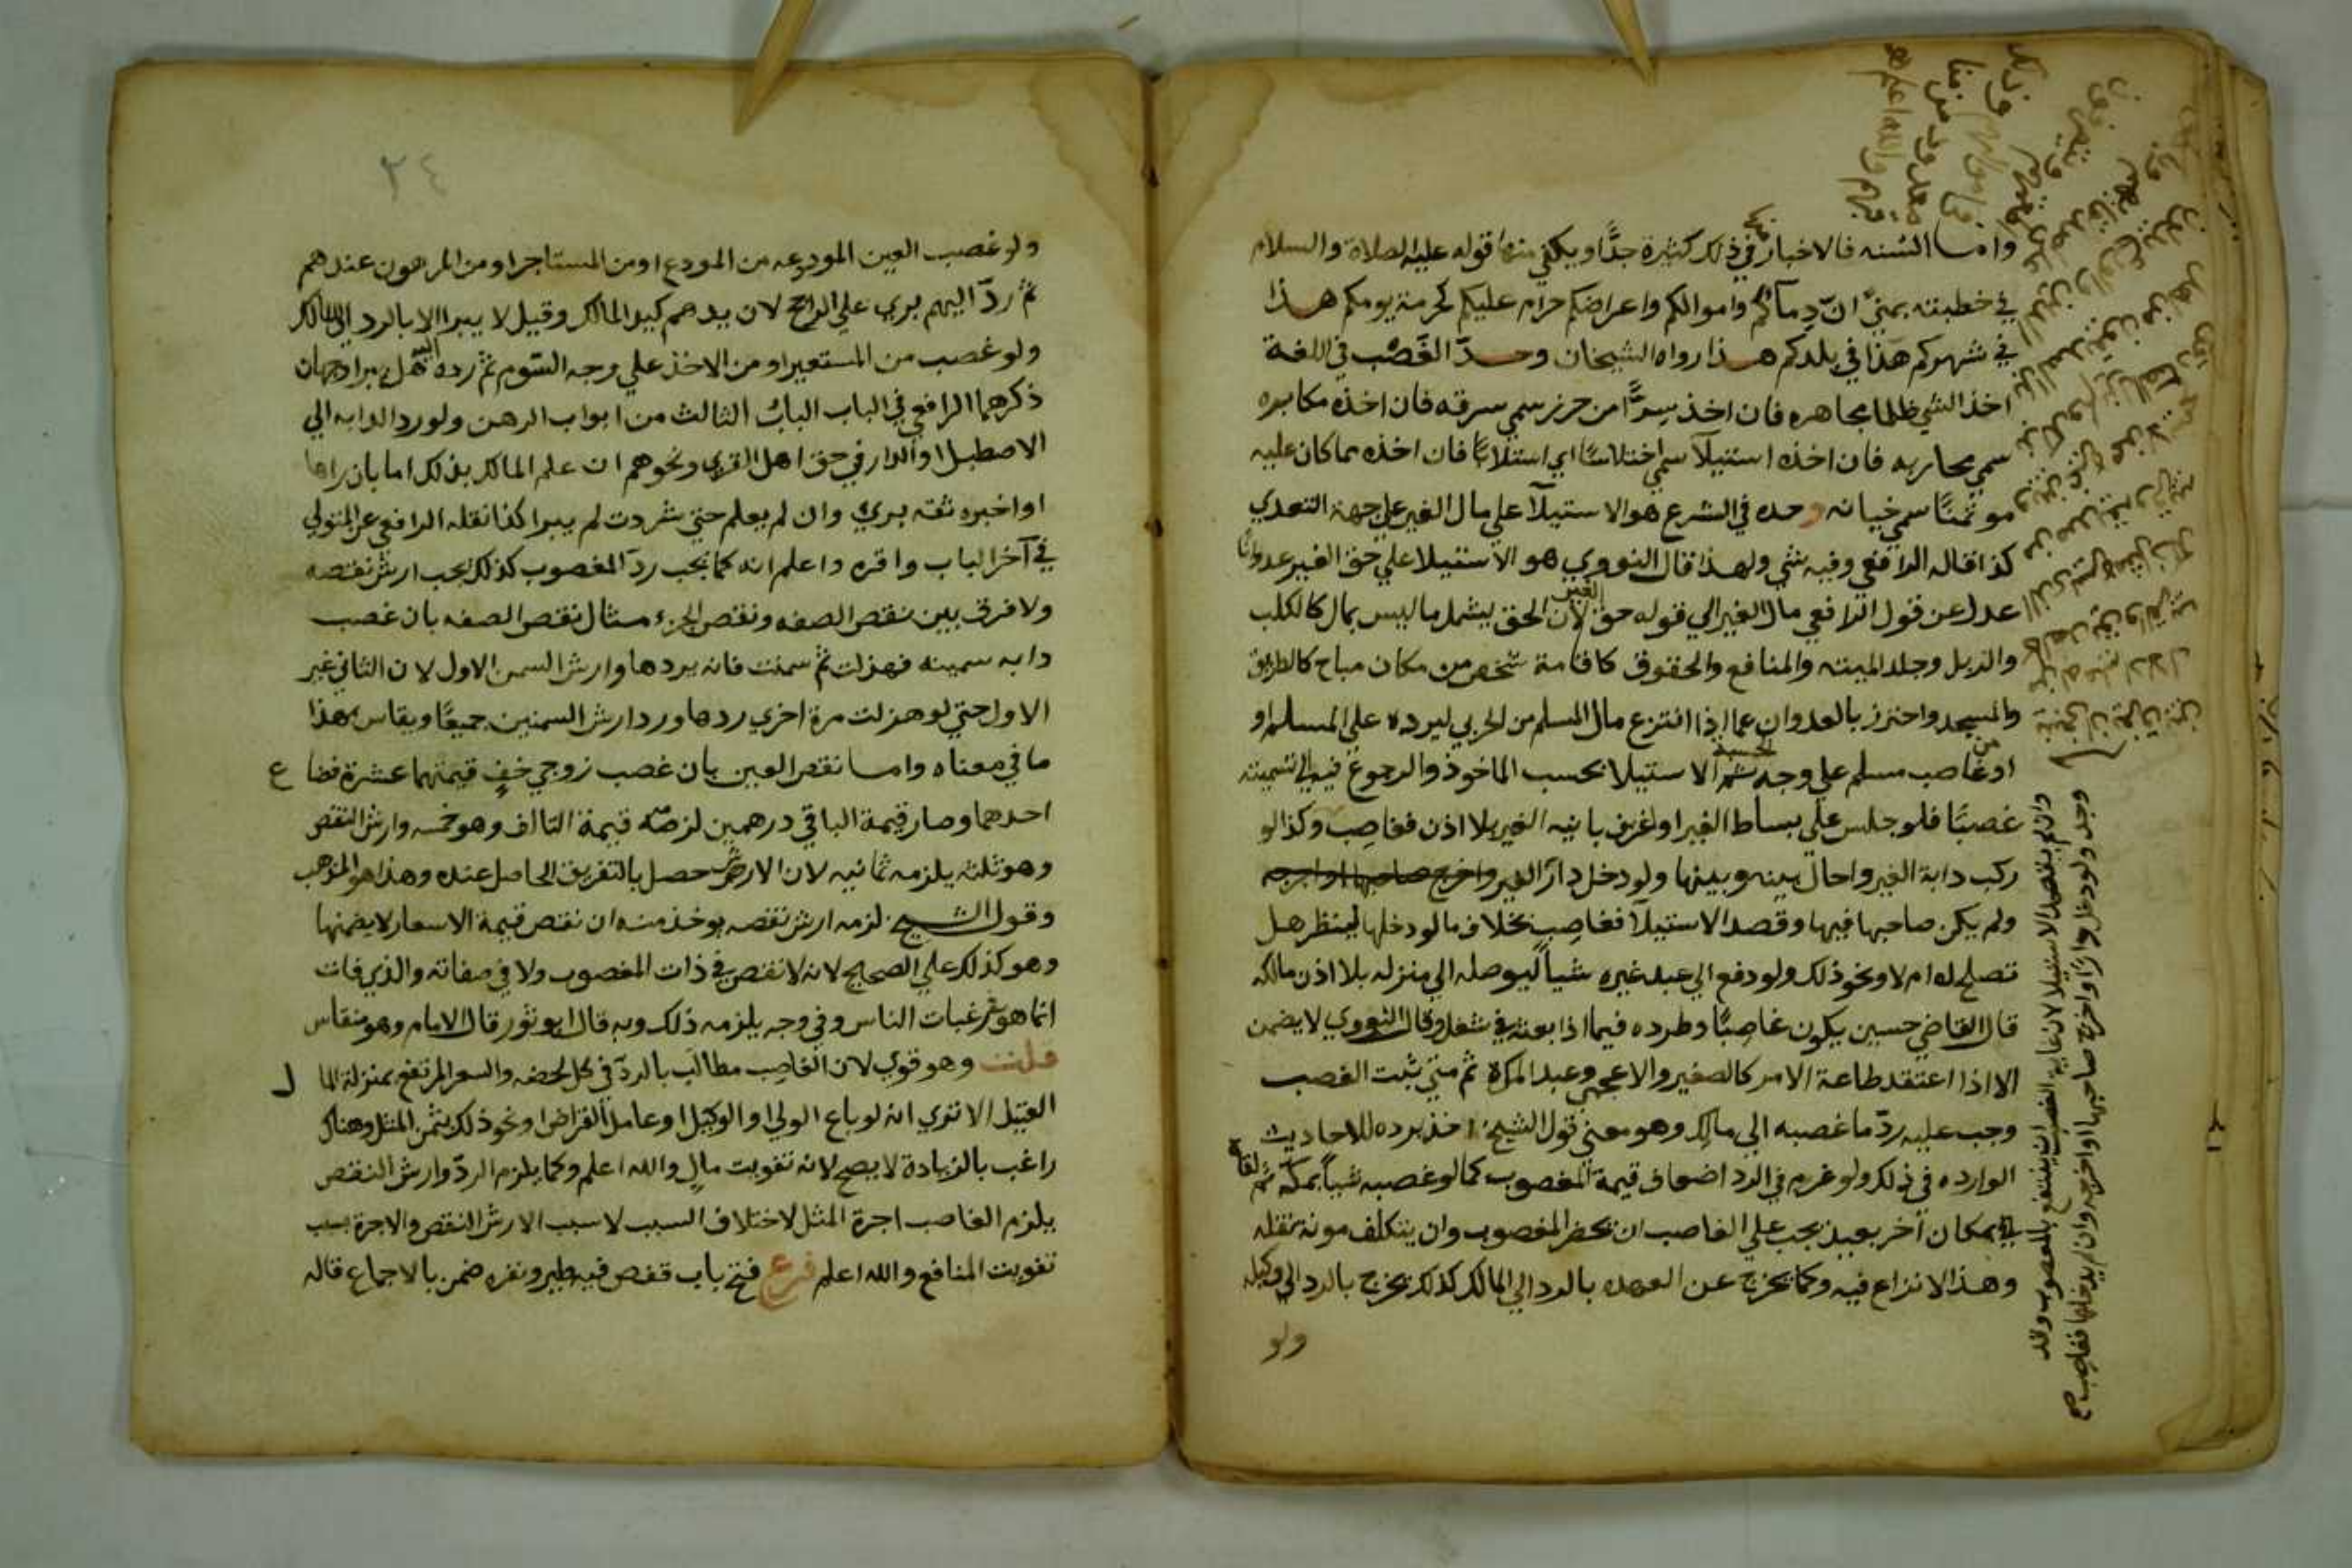 واما السنه فالاخبار في ذلك كثيرة جدًّا ويكفي منها قوله عليه الصلاة والسلام
في خطبته بمنى ان دماكم واموالكم واعراضكم حرام عليكم كحرمة يومكم هذا
في شهركم هذا في بلدكم هذا رواه الشيخان وحدّ الغَصْب في اللغة
اخذ الشي ظلما مجاهره فان اخذ سرًّا من حرز سمي سرقه فان اخذه مكابره
سمي محاربه فان اخذه استيلآ سمي اختلاسًا اي استلابًا فان اخذه مما كان عليه
موتمنًا سمي خيانه وحده في الشرع هو الاستيلآ علي مال الغير علي جهة التعدي
كذا قاله الرافعي وفيه شي ولهذا قال النووي هو الاستيلا علي حق الغير عدوانًا
عدل عن قول الرافعي مال الغير الي قوله حق الغير لان الحق يشمل ما ليس بمال كالكلب
والزبل وجلد الميته والمنافع والحقوق كاقامة شخص من مكان مباح كالطريق
والمسجد واحترز بالعدوان عما اذا انتزع مال المسلم من الحربي ليرده علي المسلم او
او من غاصب مسلم علي وجه الحسبة ثم الاستيلا بحسب الماخوذ والرجوع فيه الي تسميته
غصبًا فلو جلس علي بساط الغير او اغترف بانيه الغير بلا اذن فغاصب وكذا لو
ركب دابة الغير واحال بينه وبينها ولو دخل دار الغير واخرج صاحبها او اخرجه
ولم يكن صاحبها فيها وقصد الاستيلآ فغاصب بخلاف ما لو دخلها لينظر هل
تصلح له ام لا ونحو ذلك ولو دفع الي عبد غيره شياً ليوصله الي منزله بلا اذن مالكه
قال القاضي حسين يكون غاصبًا وطرده فيما اذا بعثه في شغل وقال النووي لا يضمن
الا اذا اعتقد طاعة الامر كالصغير والاعجمي وعبد المراة ثم متي ثبت الغصب
وجب عليه ردّ ما غصبه الي مالكه وهو معني قول الشيخ اخذ برده للاحاديث
الوارده في ذلك ولو غرم في الرد اضعاف قيمة المغصوب كما لو غصبه شياً بمكة ثم لقاه
في مكان آخر بعيد يجب علي الغاصب ان يحضر المغصوب وان يتكلف مونة نقله
وهذا لا نزاع فيه وكما يخرج عن العهده بالرد الي المالك كذلك يخرج بالرد الي وكيله
ولو
وان لم يقصد الاستيلا لان غاية الغصب ان ينتفع بالمغصوب وقد
وجد ولو دخل دارًا واخرج صاحبها او اخرجه وان لم يدخلها فغاصب صح
٢٤
ولو غصب العين المودعه من المودع او من المستاجر او من المرهون عندهم
ثم ردّ اليهم بري علي الراجح لان يدهم كيد المالك وقيل لا يبرا الا بالرد الي المالك
ولو غصب من المستعير او من الاخذ علي وجه السّوم ثم رده اليه هل يبرا وجهان
ذكرهما الرافعي في الباب الباب الثالث من ابواب الرهن ولو رد الدابه الي
الاصطبل او الدار في حق اهل القري ونحوهم ان علم المالك بذلك اما بان راها
او اخبره ثقه بري وان لم يعلم حتي شردت لم يبرا كذا نقله الرافعي عن المتولي
في آخر الباب واقره واعلم انه كما يجب ردّ المغصوب كذلك يجب ارش نقصه
ولا فرق بين نقص الصفه ونقص الجزء مثال نقص الصفه بان غصب
دابه سمينه فهزلت ثم سمنت فانه يردها وارش السمن الاول لان الثاني غير
الاول حتي لو هزلت مرة اخري ردها ورد ارش السمنين جميعًا ويقاس بهذا
ما في معناه واما نقص العين بان غصب زوجي خفٍ قيمتهما عشرة فضاع
احدهما وصار قيمة الباقي درهمين لزمه قيمة التالف وهو خمسه وارش النقص
وهو ثلثه يلزمه ثمانيه لان الارش حصل بالتفريق الحاصل عنده وهذا هو المذهب
وقول الشيخ لزمه ارش نقصه يوخذ منه ان نقص قيمة الاسعار لا يضمنها
وهو كذلك علي الصحيح لانه لا نقص في ذات المغصوب ولا في صفاته والذي فات
انما هو رغبات الناس وفي وجه يلزمه ذلك وبه قال ابو ثور قال الامام وهو منقاس
قلت وهو قوي لان الغاصب مطالب بالردّ في كل لحضه والسعر المرتفع بمنزلة المال
العتيل الا تري انه لو باع الولي او الوكيل او عامل القراض او نحو ذلك بثمن المثل وهناك
راغب بالزيادة لا يصح لانه تفويت مالٍ والله اعلم وكما يلزم الردّ وارش النقص
يلزم الغاصب اجرة المثل لاختلاف السبب لا سبب الارش النقص والاجرة بسبب
تفويت المنافع والله اعلم فرع فتح باب قفص فيه طير ونفره ضمن بالاجماع قاله